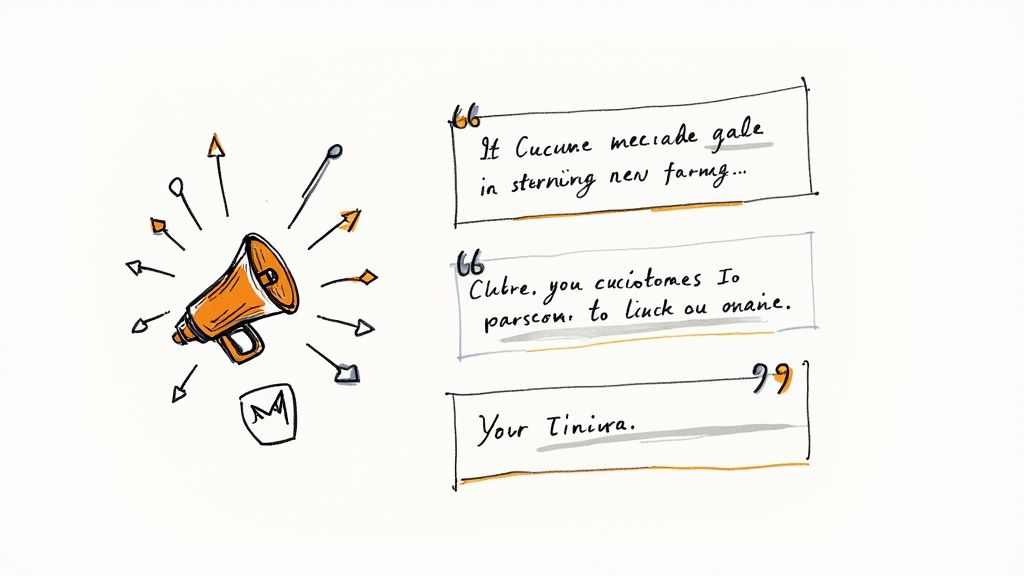 It Cucune meciade gale
in sterning new farmg...
Clutre. you cuciotomes Io
parscon. to linck ou onanie.
Your Tinina.
M